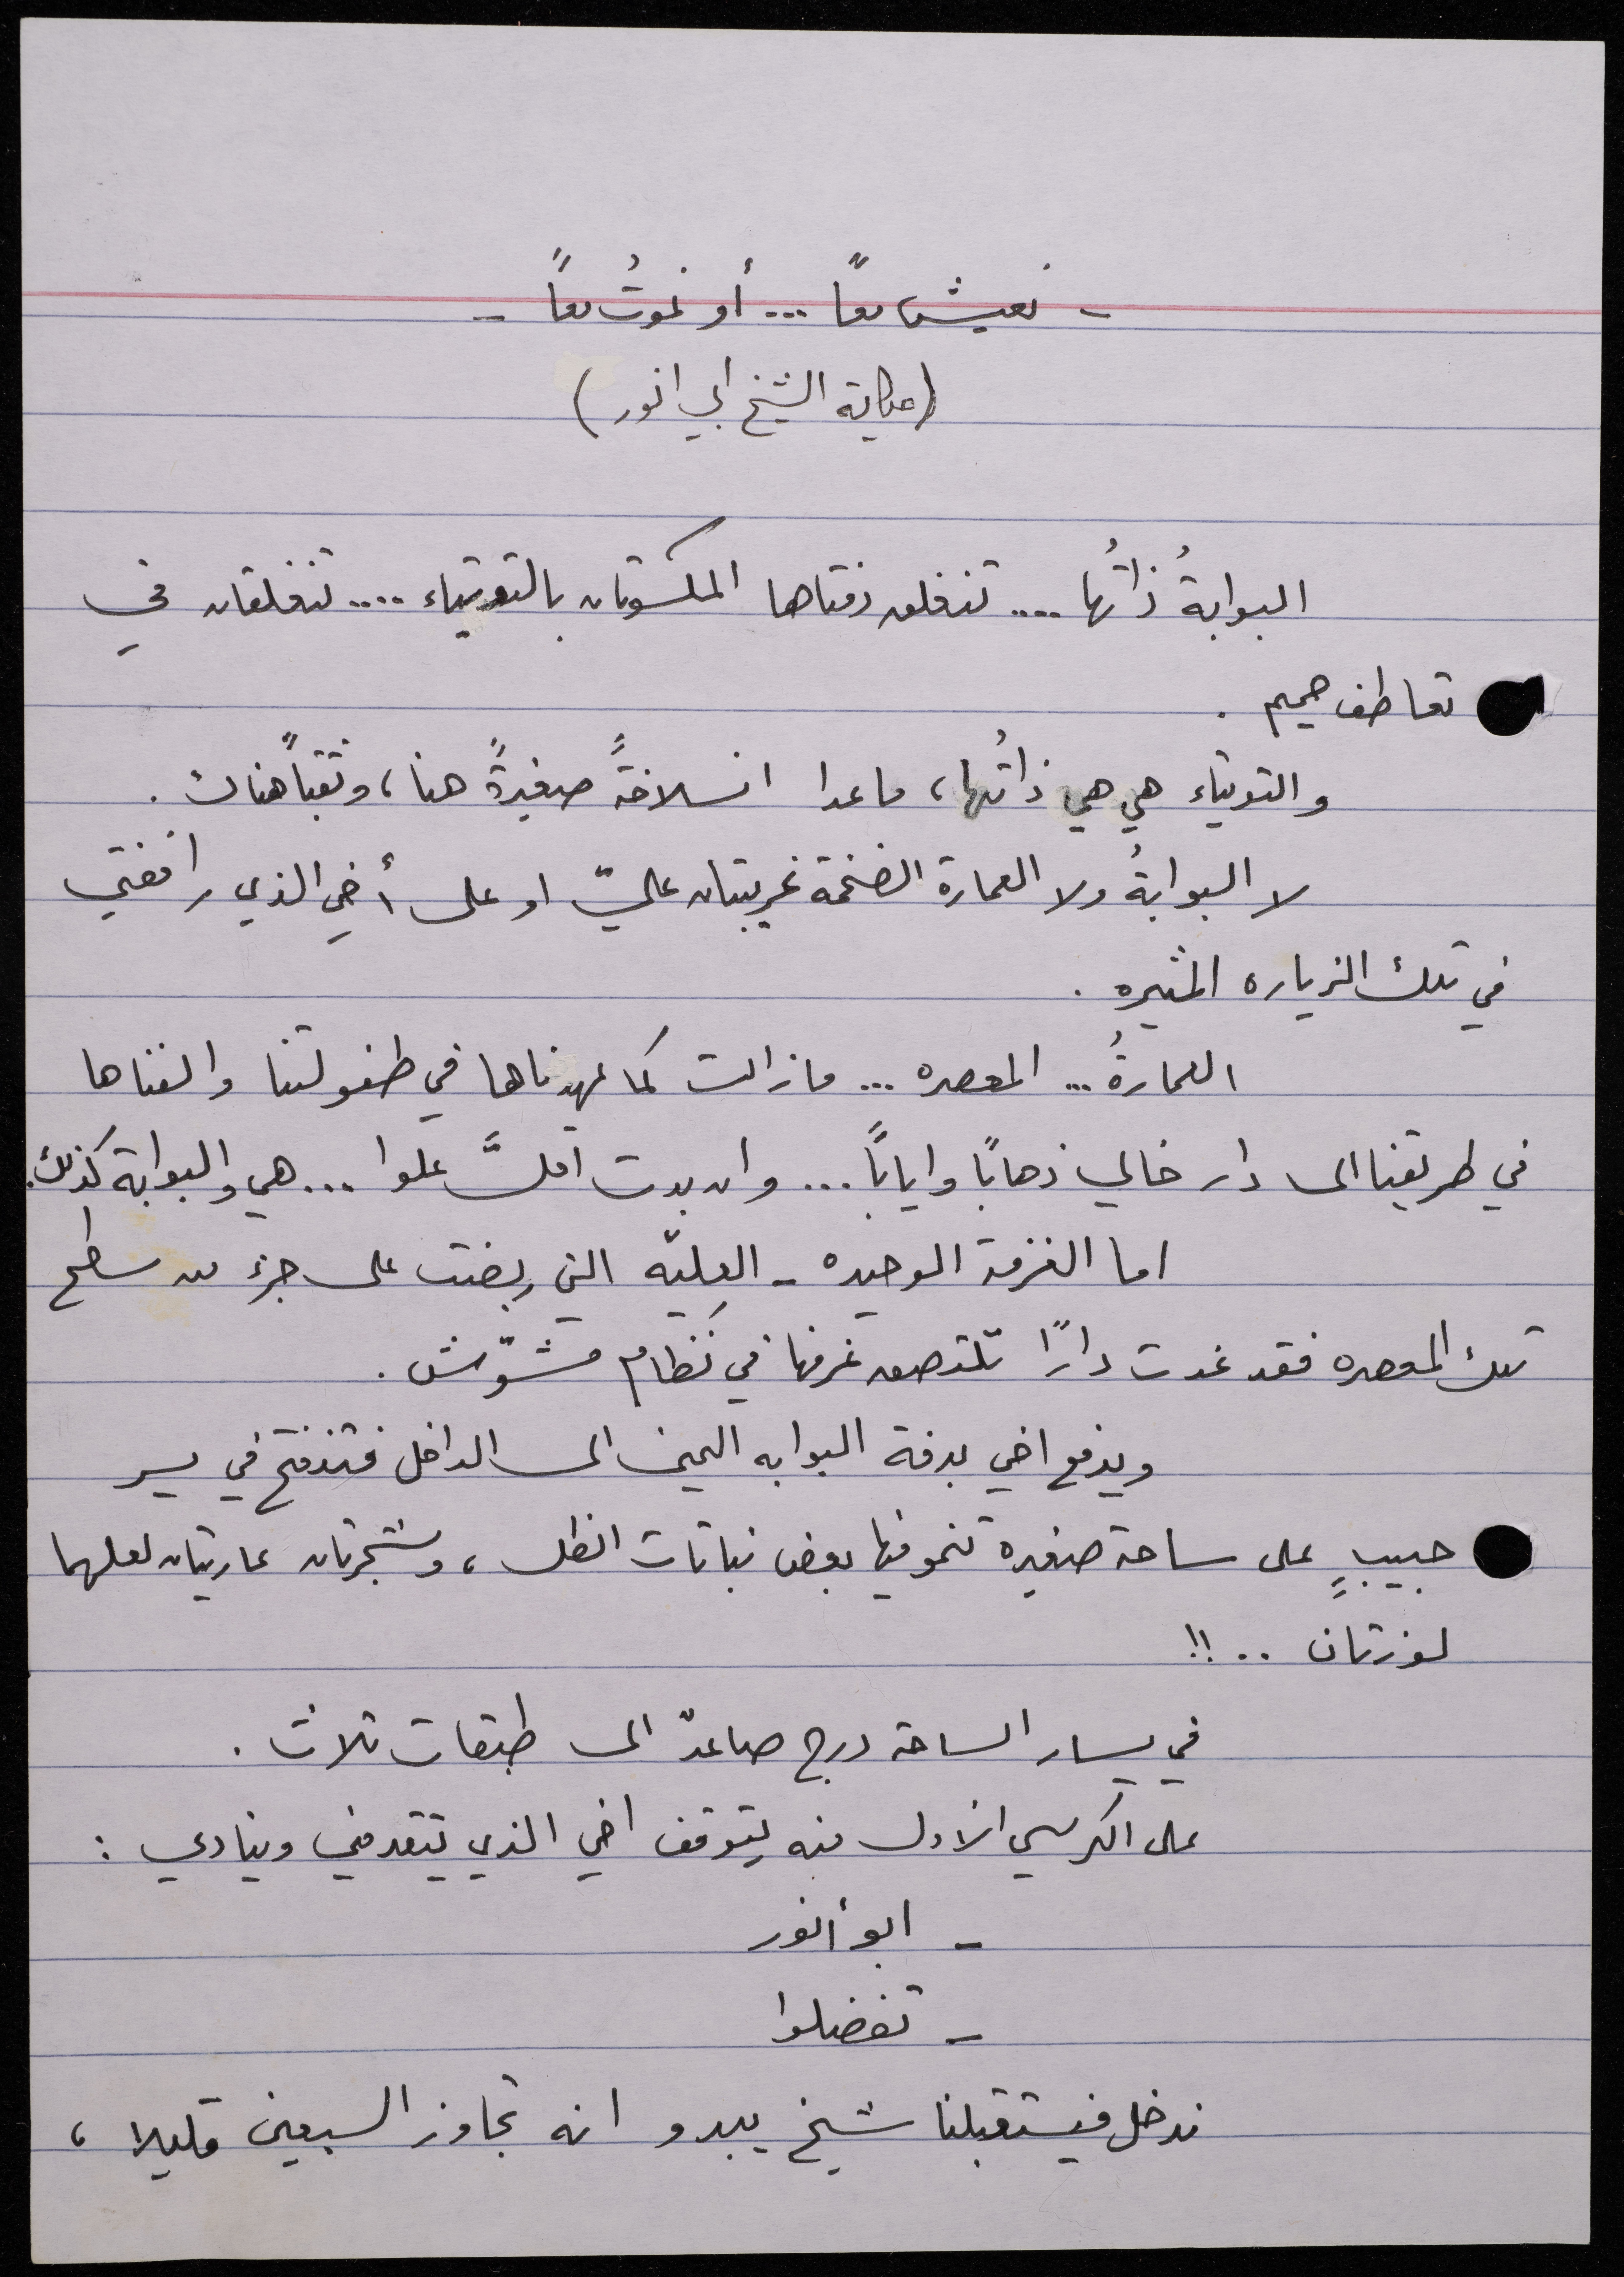 - نعيش معًا ... أو نموتُ معًا -
(حكاية الشيخ ابي انور)
البوابةُ ذاتُها .... تنغلق دفتاها المكسوتان بالتوتياء .... تنغلقان في
تعاطف حميم .
والتوتياء هي هي ذاتُها، ماعدا انسلاخةً صغيرةً هنا، وثقبًا هناك .
لا البوابةُ ولا العمارة الضخمة غريبتان عليّ او على أخي الذي رافقني
في تلك الزياره المثيره .
العمارةُ ... المعصره ... مازالت كما عهدناها في طفولتنا والفناها
في طريقنا الى دار خالي ذهابًا وايابًا ... وان بدت اقلَّ علوا ... هي والبوابة كذلك.
اما الغرفة الوحيده - العِليّه التي ربضت على جزء من سطح
تلك المعصره فقد غدت دارًا تلتصق غرفها في نظام مشوّش .
ويدفع اخي بدفة البوابه اليمنى الى الداخل فتنفتح في يسر
حبيبٍ على ساحة صغيره تنمو فيها بعض نباتات الظل ، وشجرتان عاريتان لعلهما
لوزتان .. !!
في يسار الساحة درج صاعدٌ الى طبقات ثلاث .
على الكرسي الاول منه يتوقف اخي الذي يتقدمني وينادي :
- ابو أنور
- تفضلوا
ندخل فيستقبلنا شيخ يبدو انه تجاوز السبعين قليلا ،